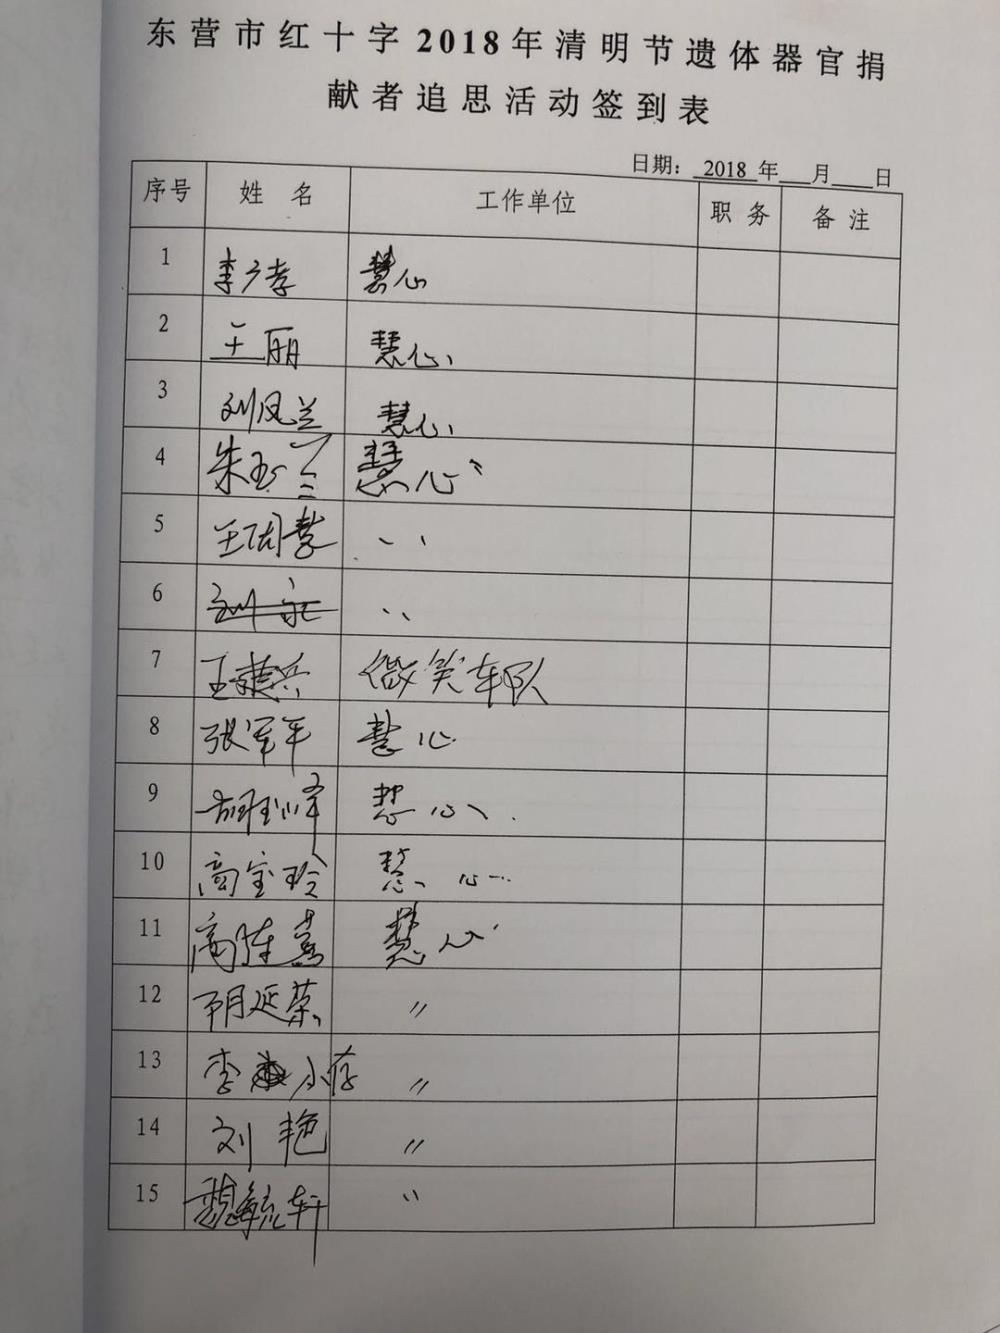 东营市红十字2018年清明节遗体器官捐
献者追思活动签到表
日期： 2018 年 月 日
序号 姓 名 工作单位 职 务 备 注
1 李广孝 慧心
2 王丽 慧心
3 刘凤兰 慧心
4 朱玉兰 慧心
5 〃
6 〃
7 王建兵 微笑车队
8 张军平 慧心
9 慧心
10 高宝玲 慧心
11 高 慧心
12 延荣 〃
13 李 小存 〃
14 刘艳 〃
15 魏毓轩 〃